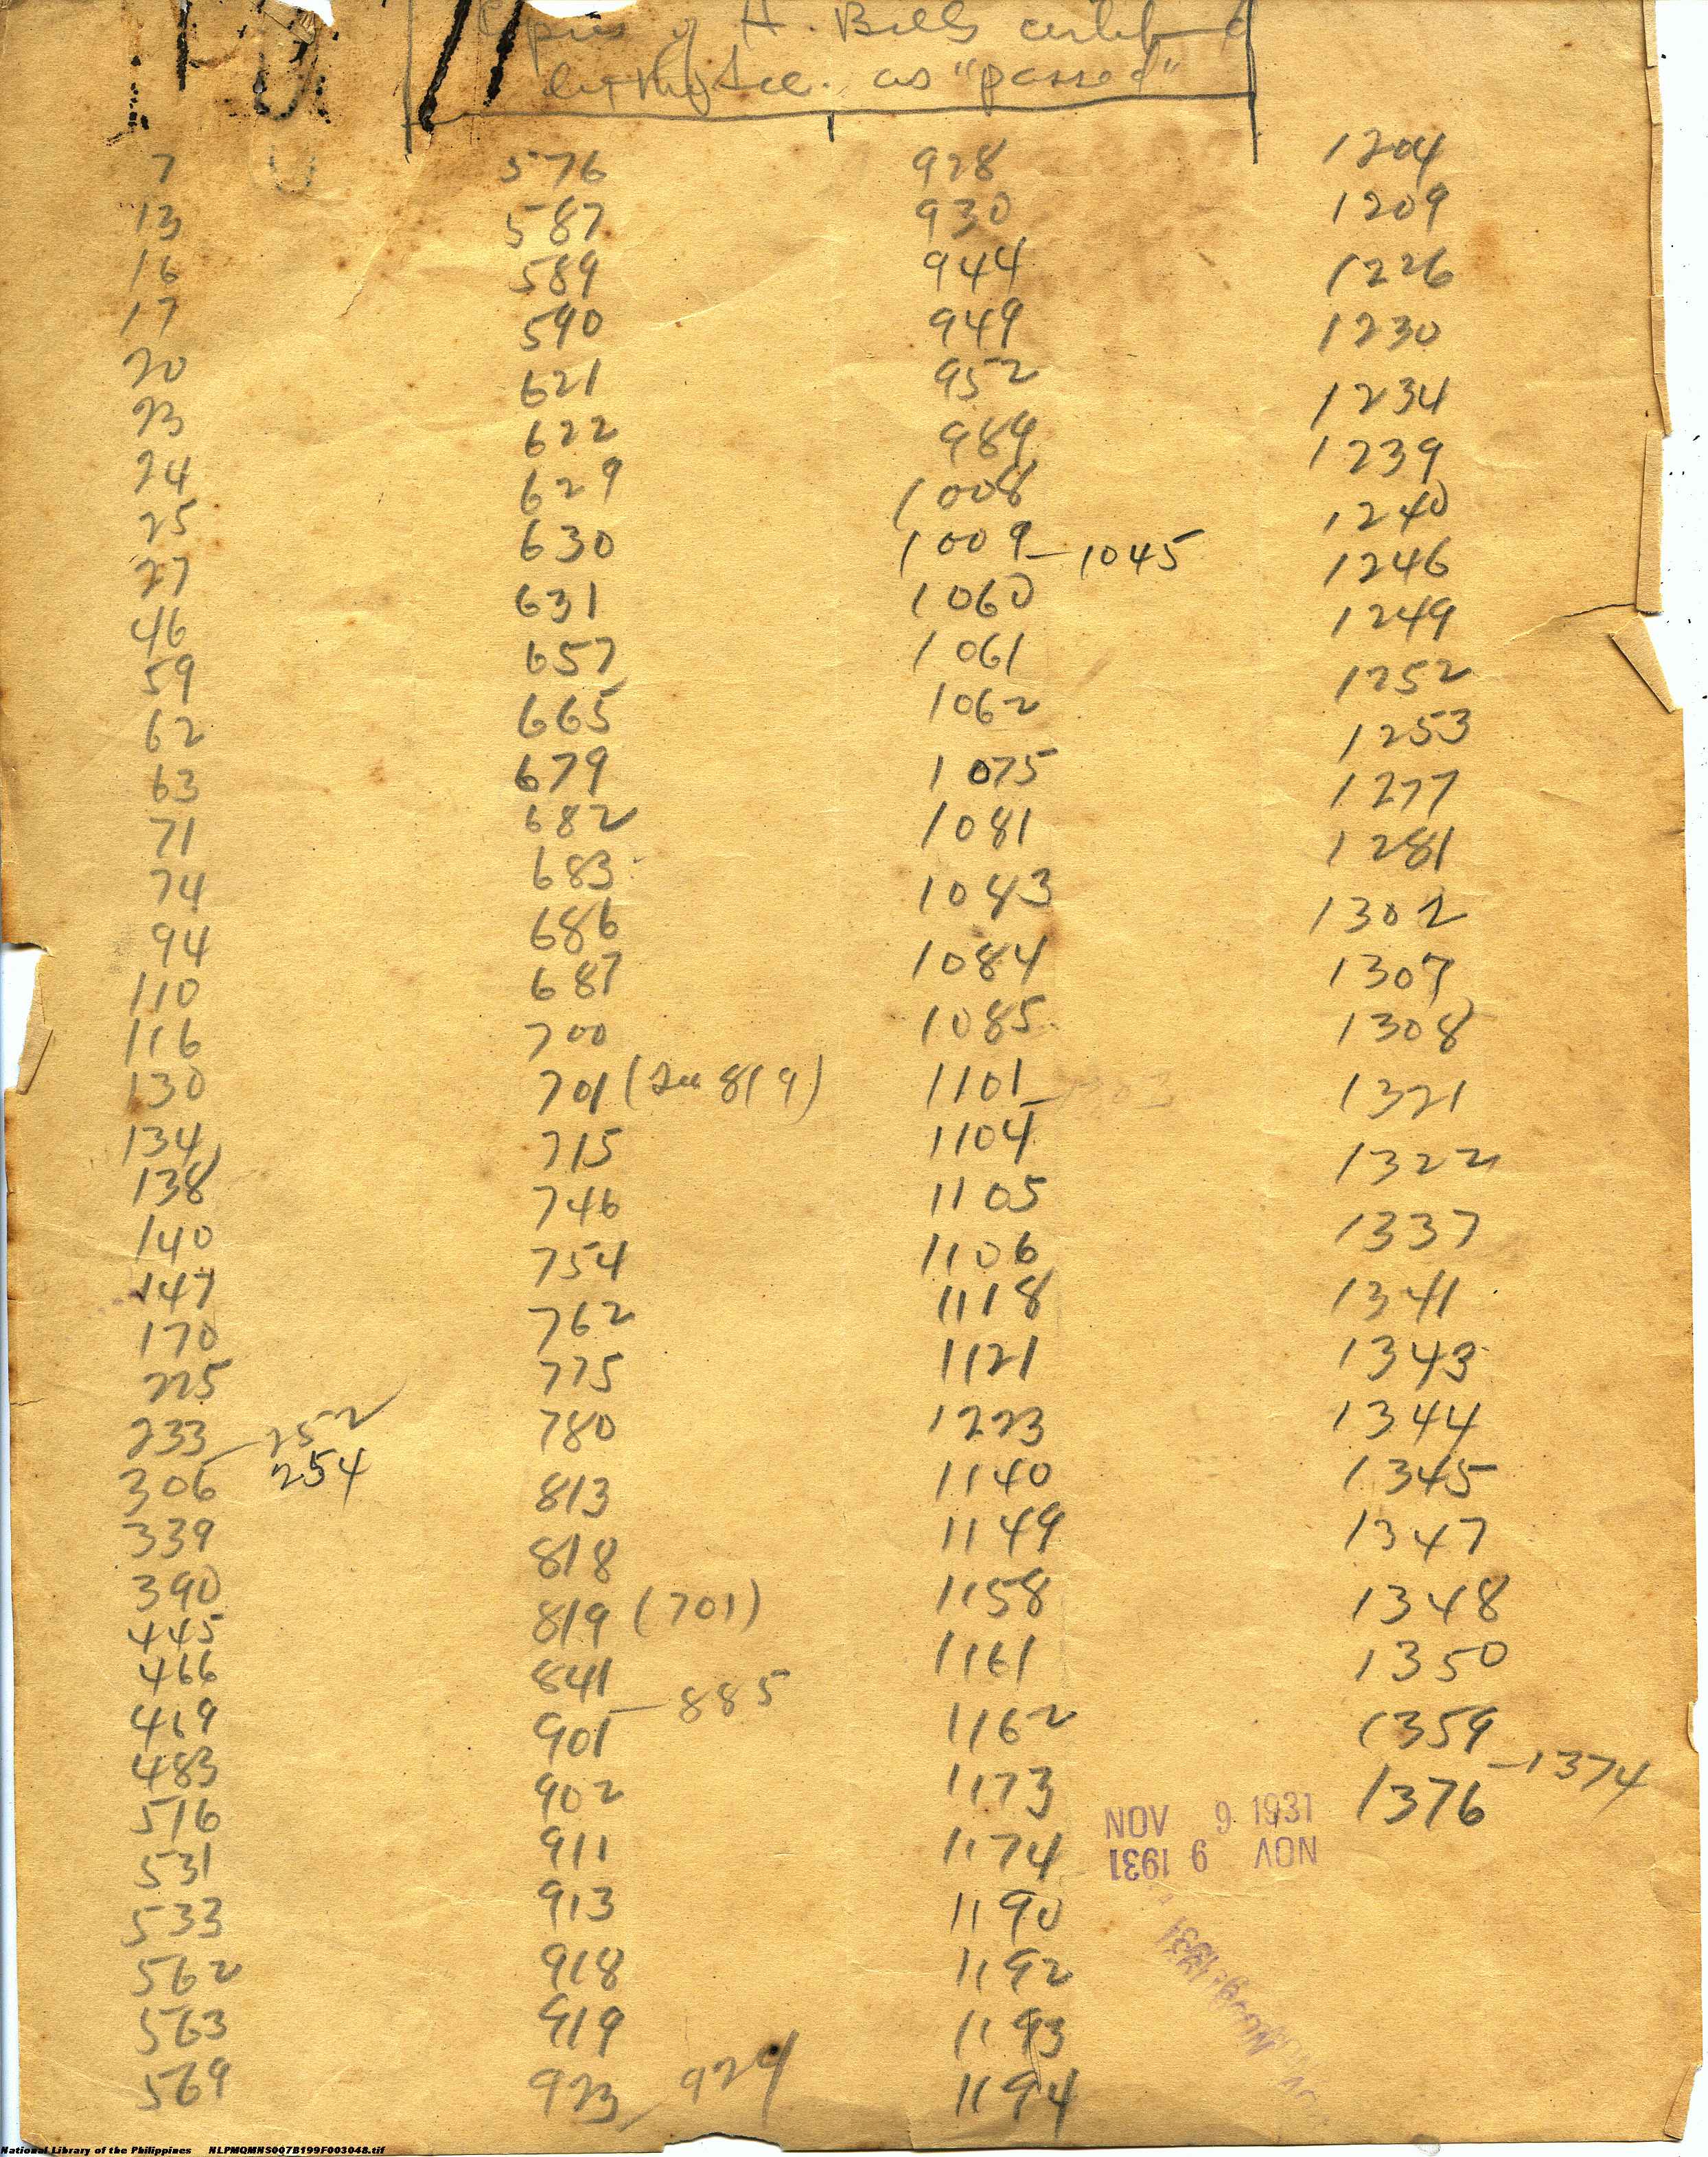 Copies of H. Bills certified
by the Sec. as "passed"
7
13
16
17
20
23
24
25
27
46
59
62
63
71
74
94
110
116
130
134
138
140
147
170
225
233 - 252
254
306
339
390
445
466
469
483
516
531
533
562
563
569
576
587
589
590
621
622
629
630
631
657
665
679
682
683
686
687
700
701 (See 819)
715
746
754
762
775
780
813
818
819 (701)
841
- 885
901
902
911
913
918
919
923 929
928
930
944
949
952
989
1008
1009 - 1045
1060
1061
1062
1075
1081
1083
1084
1085
1101
1104
1105
1106
1118
1121
1223
1140
1149
1158
1161
1162
1173
1174
1190
1192
1193
1194
1204
1209
1226
1230
1234
1239
1240
1246
1249
1252
1253
1277
1281
1302
1307
1308
1321
1322
1337
1341
1343
1344
1345
1347
1348
1350
1359
- 1374
1376
NOV 9 1931
NOV 9 1931
National Library of the Philippines NLPMQMNS007B199F003048.tif